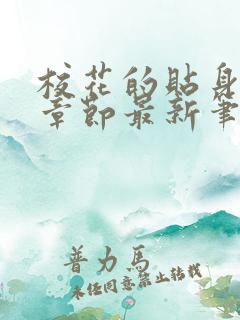 校花的贴身
章节最新笔
普力马
未经同意禁止转载